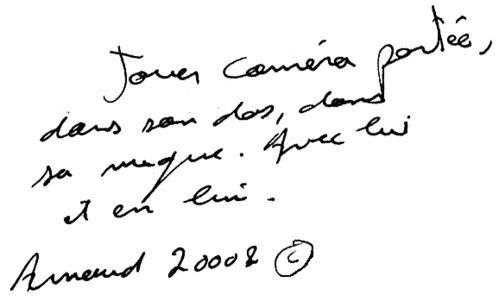 Jouer caméra portée,
dans son dos, dans
sa nuque. Avec lui
et en lui.
Arnaud 20008 ©